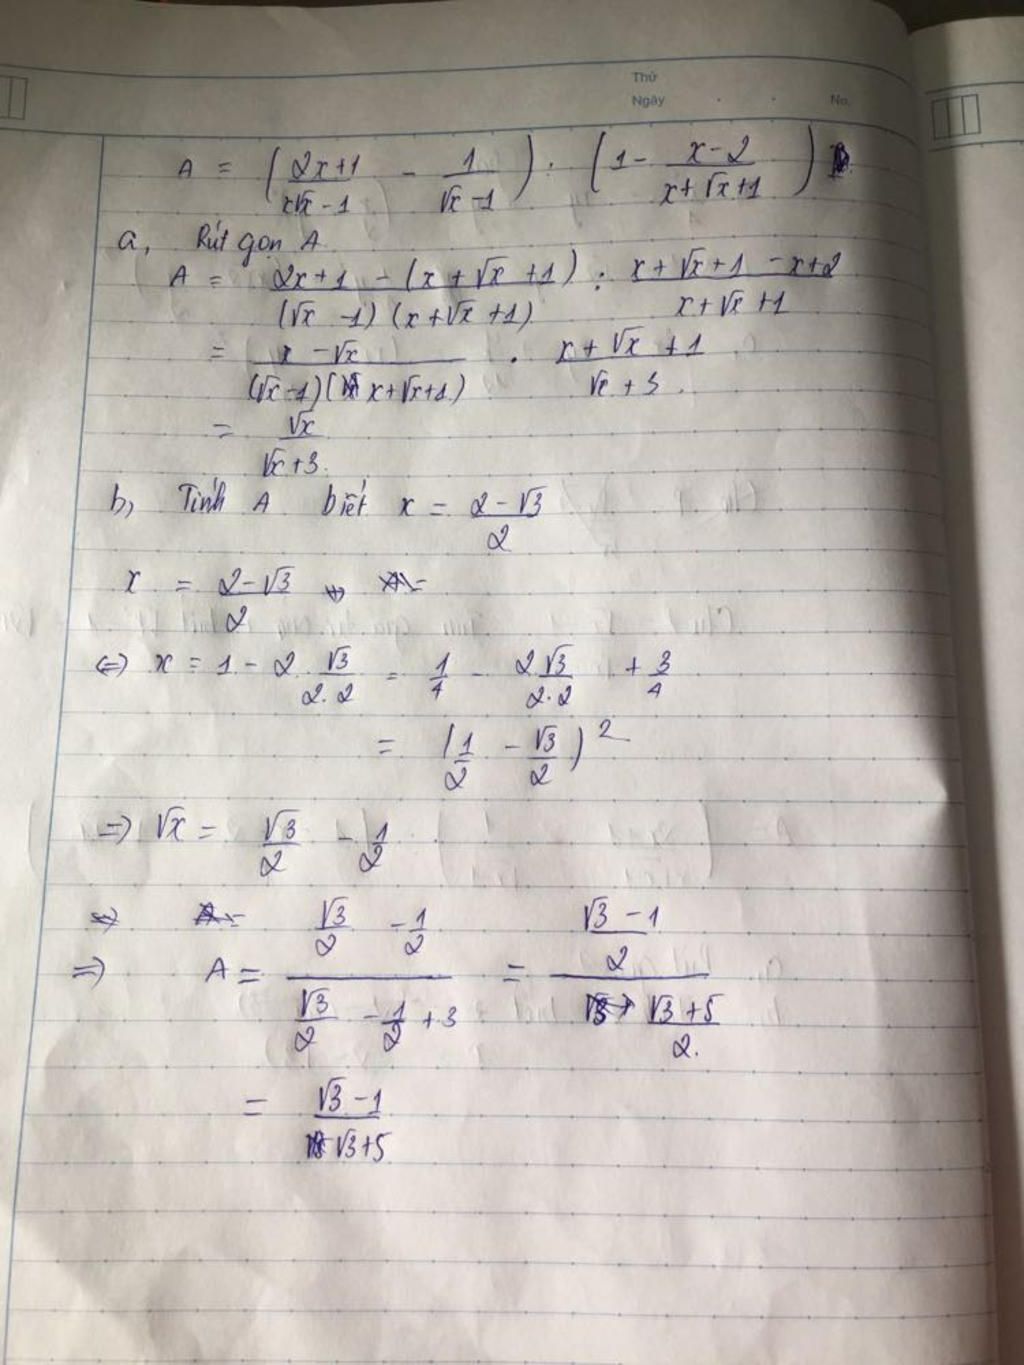 Thứ
Ngày . . No.
A = (2x+1/x√x-1 - 1/√x-1) : (1 - x-2/x+√x+1)
a, Rút gọn A
A = 2x+1 -(x+√x+1)/(√x-1)(x+√x+1) : x+√x+1-x+2/x+√x+1
= x-√x/(√x-1)(x+√x+1) . x+√x+1/√x+3.
= √x/√x+3.
b, Tính A biết x = 2-√3/2
x = 2-√3/2
(=) x = 1 - 2 √3/2.2 = 1/4 - 2√3/2.2 + 3/4
= (1/2 - √3/2)²
=) √x = √3/2 - 1/2
=) A = √3/2 - 1/2 / √3/2 - 1/2 + 3 = √3-1/2 / √3+5/2.
= √3-1/√3+5